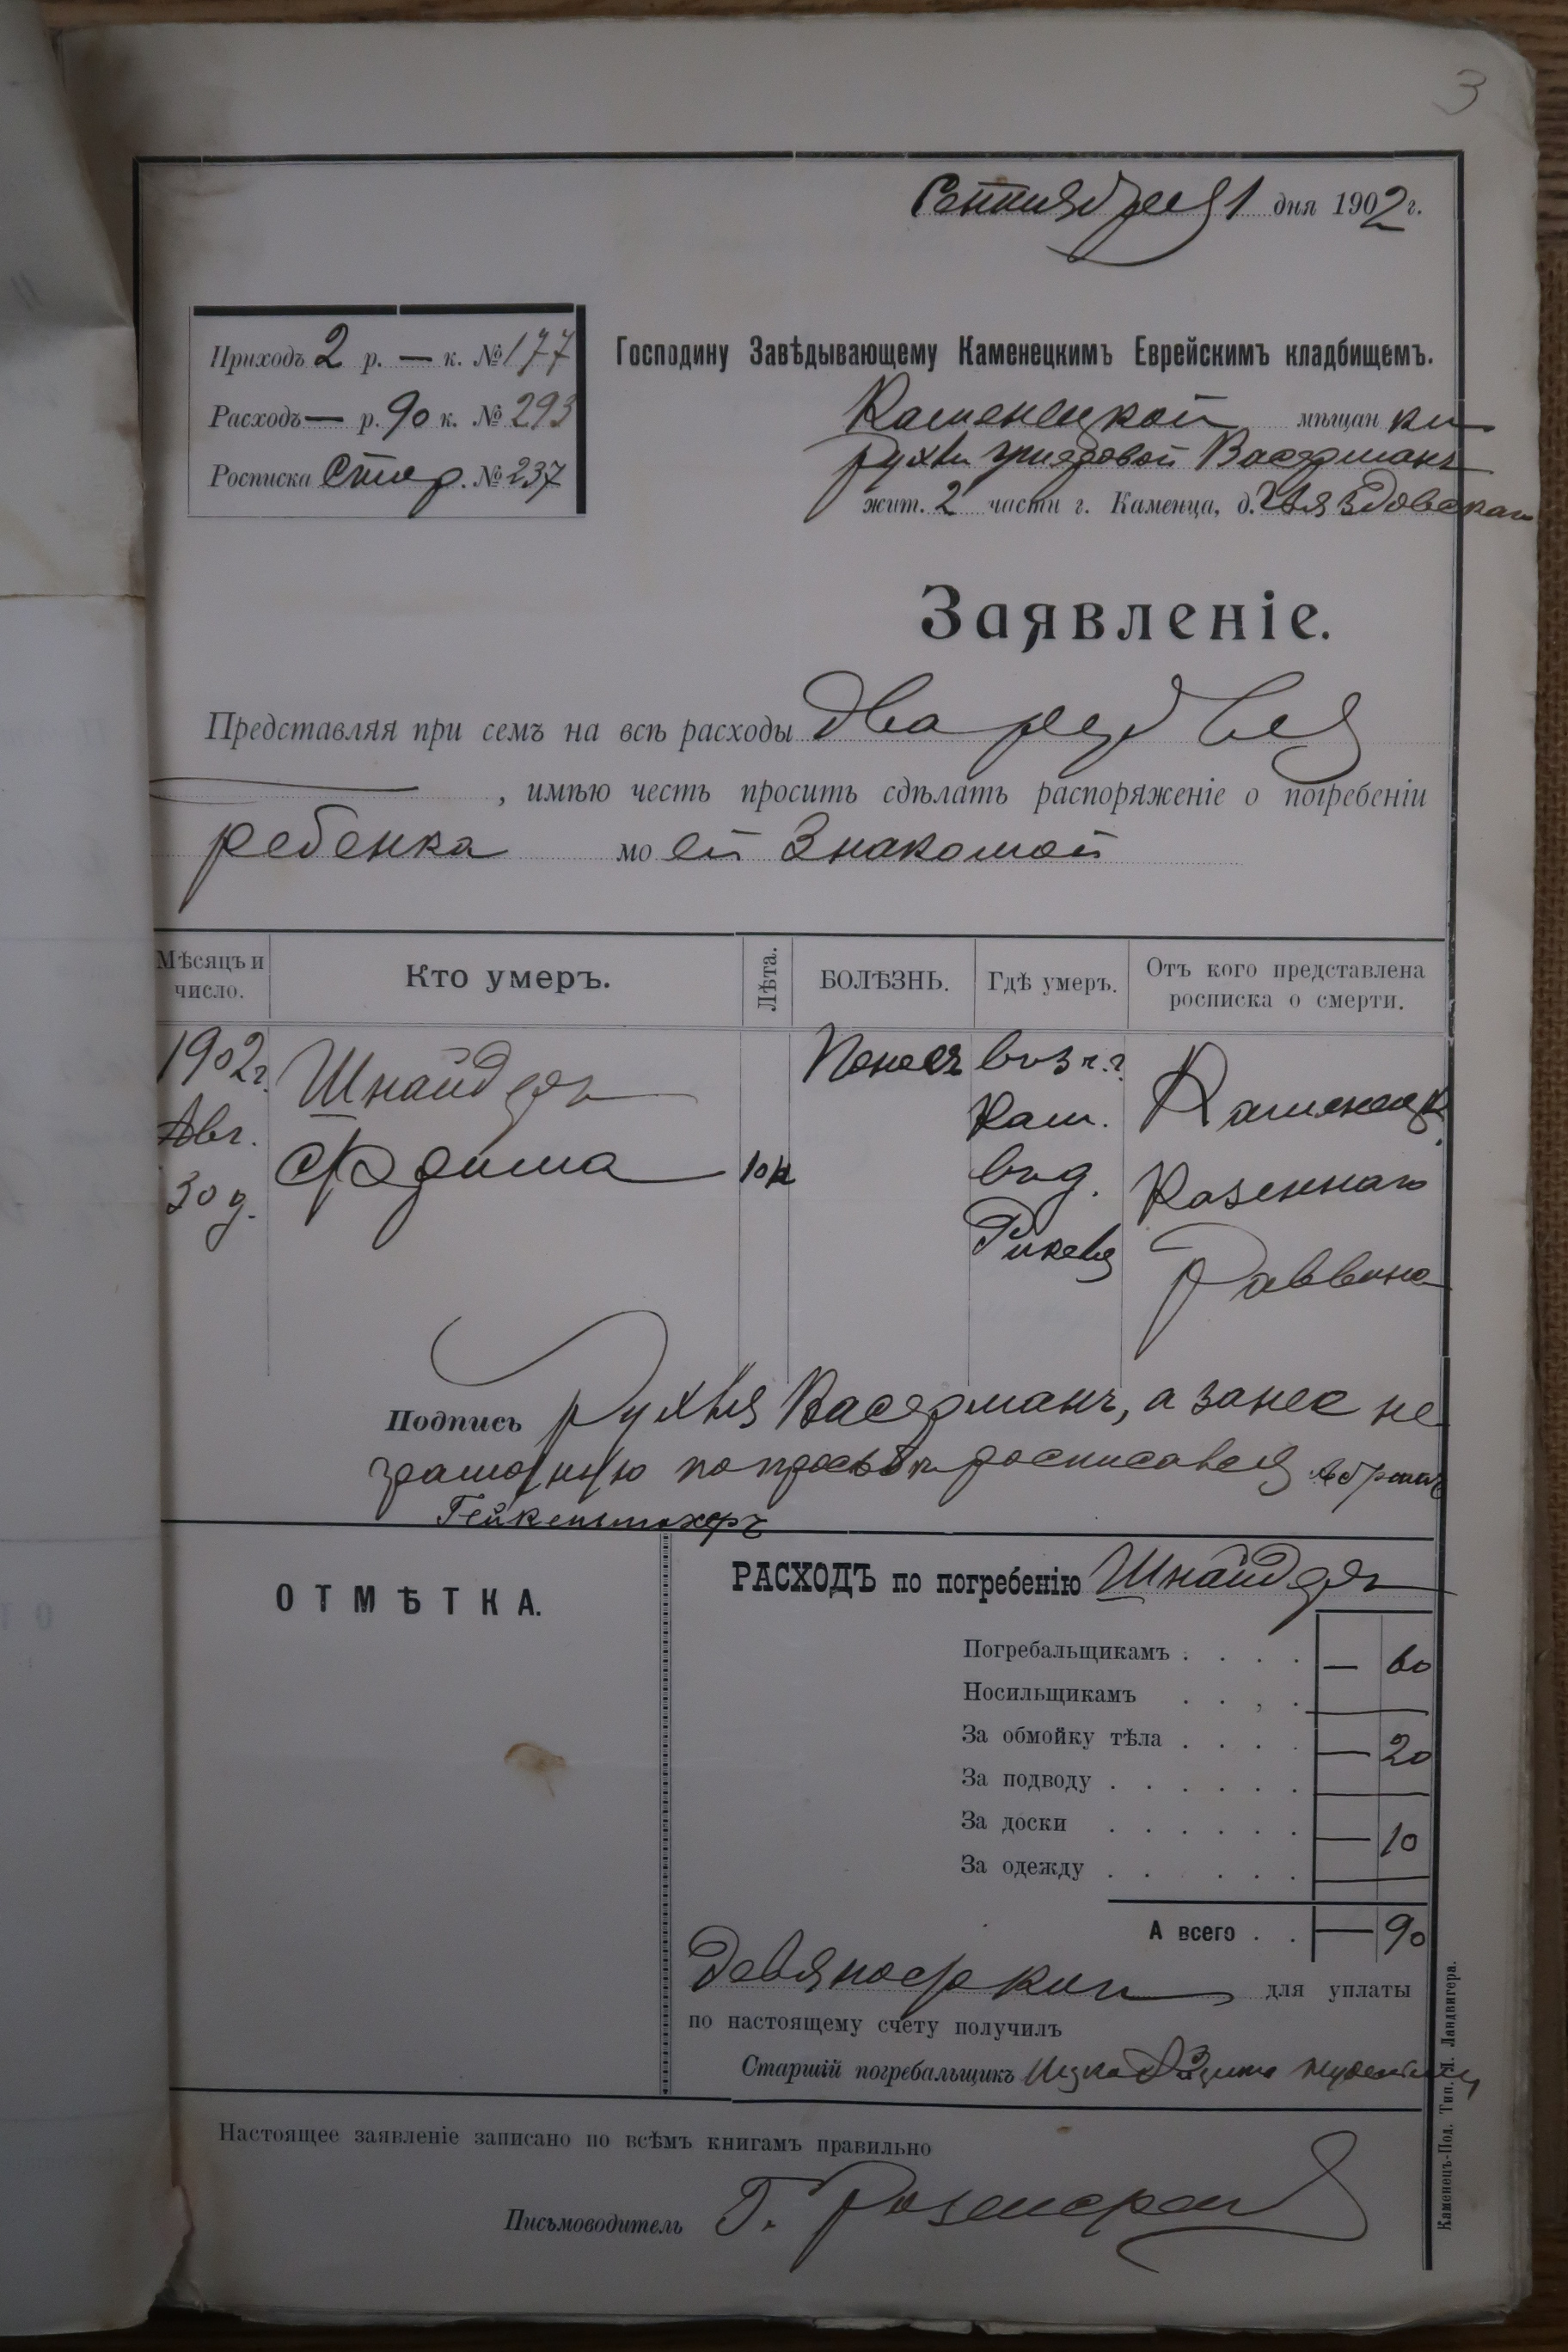 3
Сентября 1 дня 1902 г.
Приходъ 2 р. — к. № 177
Расходъ — р. 90 к. № 293
Росписка Стар. № 237
Господину Завѣдывающему Каменецкимъ Еврейскимъ кладбищемъ.
Каменецкой мѣщанки
Рухли Васерманъ
жит. 2 части г. Каменца, д.
Заявленіе.
Представляя при семъ на всѣ расходы два рубля
, имѣю честь просить сдѣлать распоряженіе о погребеніи
ребенка моей Знакомой
Мѣсяцъ и число. Кто умеръ. Лѣта. БОЛѢЗНЬ. Гдѣ умеръ. Отъ кого представлена росписка о смерти.
1902 г. Авг. 30 д.
Шнайдер
Фрима
Понос
в г. Кам. в д.
Каменецк. Казеннаго Раввина
Подпись Рухля Васерманъ, а за нее не
грамотную по просьбѣ росписался Абрамъ
Гейкельмахеръ
ОТМѢТКА.
РАСХОДЪ по погребенію Шнайдер
Погребальщикамъ . . . . — 60
Носильщикамъ . . , . —
За обмойку тѣла . . . . — 20
За подводу . . . . . . —
За доски . . . . . . — 10
За одежду . . . . . —
А всего . . — 90
Девяносто коп. для уплаты
по настоящему счету получилъ
Старшій погребальщикъ Ицко
Настоящее заявленіе записано по всѣмъ книгамъ правильно
Письмоводитель Г.
Каменецъ-Под. Тип. Я. Ландвигера.